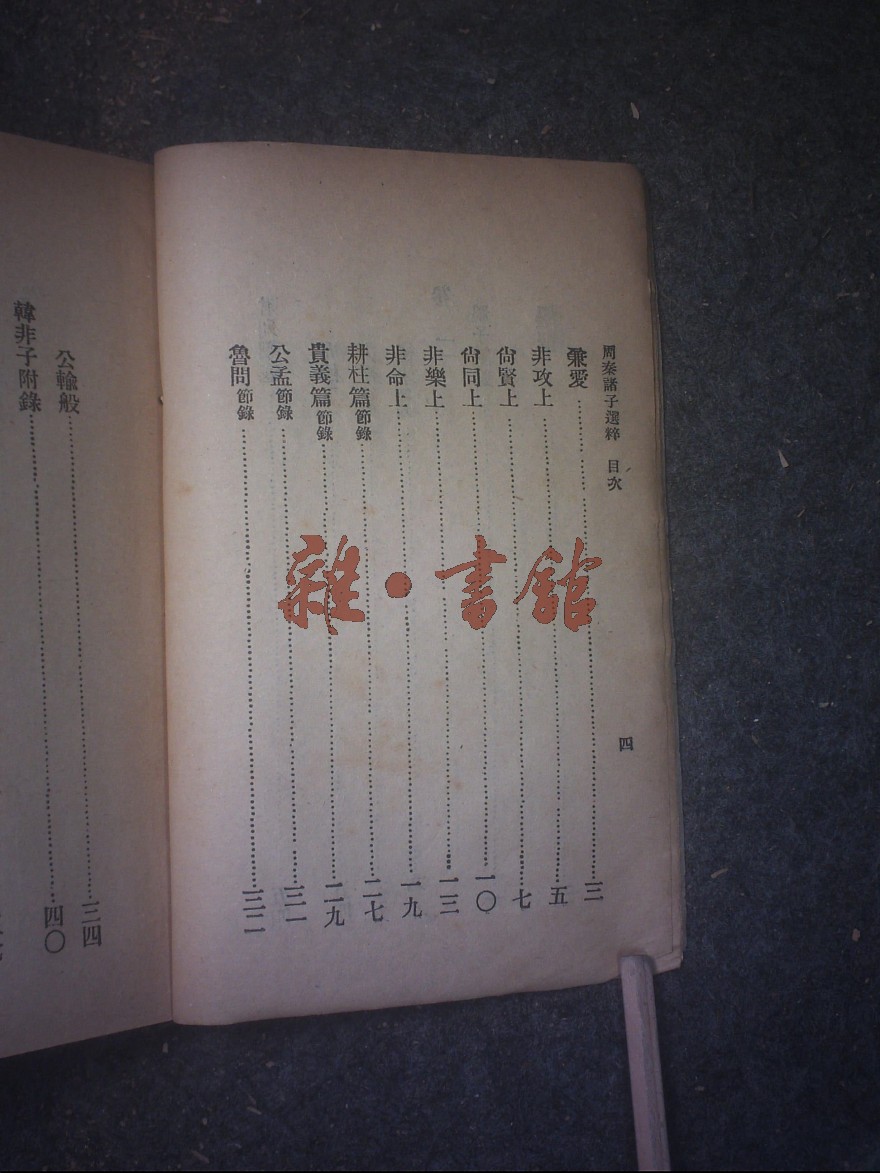 周秦諸子選粹 目次
四
兼愛……三
非攻上……五
尙賢上……七
尙同上……一〇
非樂上……一三
非命上……一九
耕柱篇節錄……二七
貴義篇節錄……二九
公孟節錄……三一
魯問節錄……三二
公輸般……三四
韓非子附錄……四〇
雜·書館